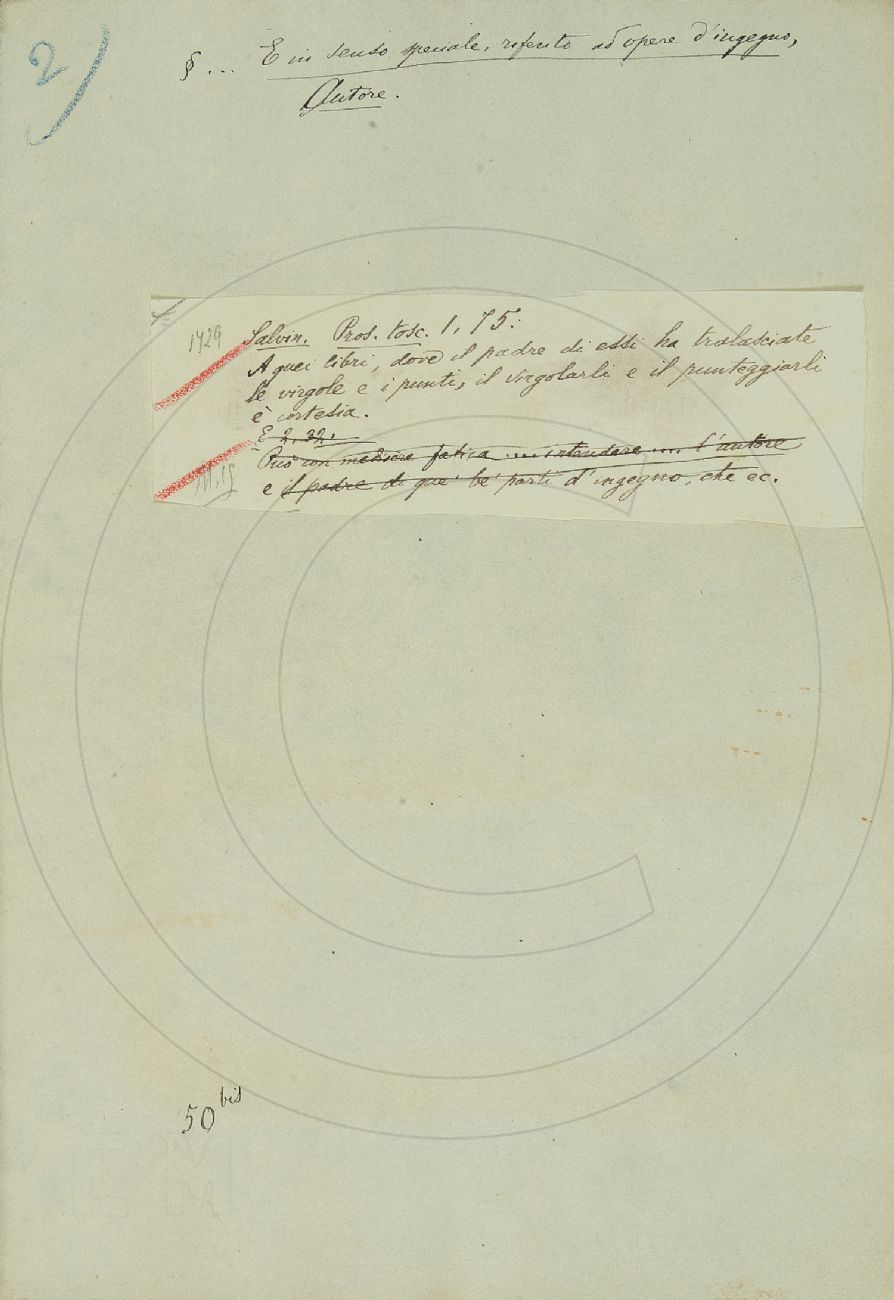 2)
§ ... E in senso speciale, riferito ad opere d'ingegno,
Autore.
1729
Salvin. Pros. tosc. 1, 75:
A quei libri, dove il padre di essi ha tralasciate
le virgole e i punti, il virgolarli e il punteggiarli
è cortesia.
E 2, 32.
Può con mediocre fatica .... intendere .... l'autore
e il padre di que' be' parti d'ingegno, che ec.
50 bis